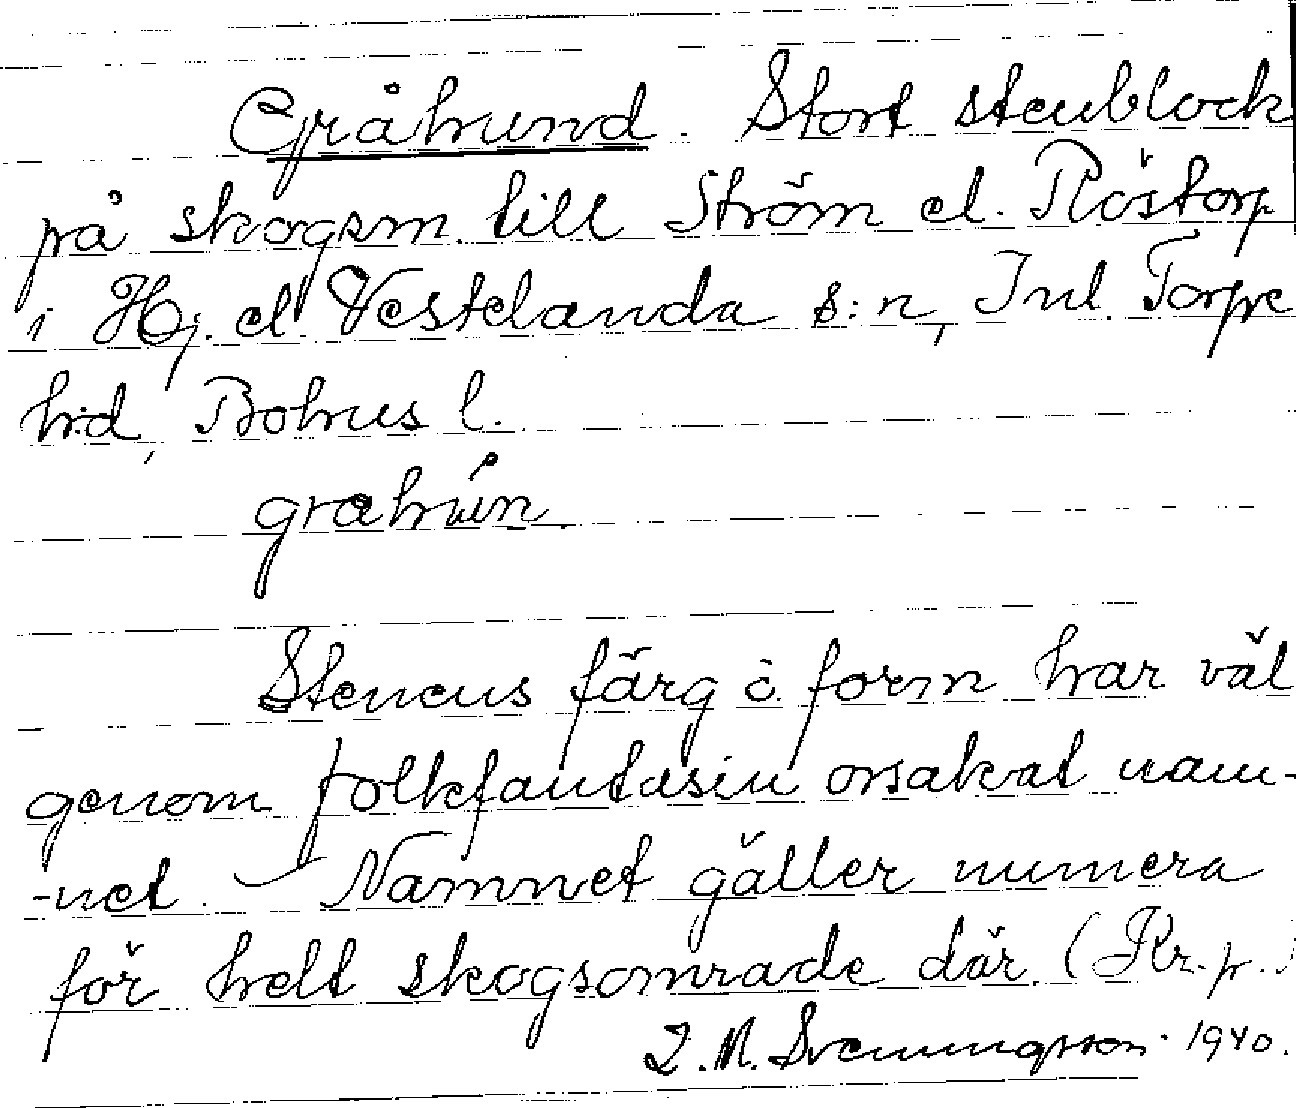 Gråhund. Stort stenblock
på skogsm. till Ström el. Röstorp
i Hj. el. Vestelanda s:n, Inl. Torpe
h:d, Bohus l.
grahún.
Stenens färg o. form har väl
genom folkfantasin orsakat nam-
-net. Namnet gäller numera
för helt skogsområde där. (Kr. p.)
J. M. Svenningsson. 1940.